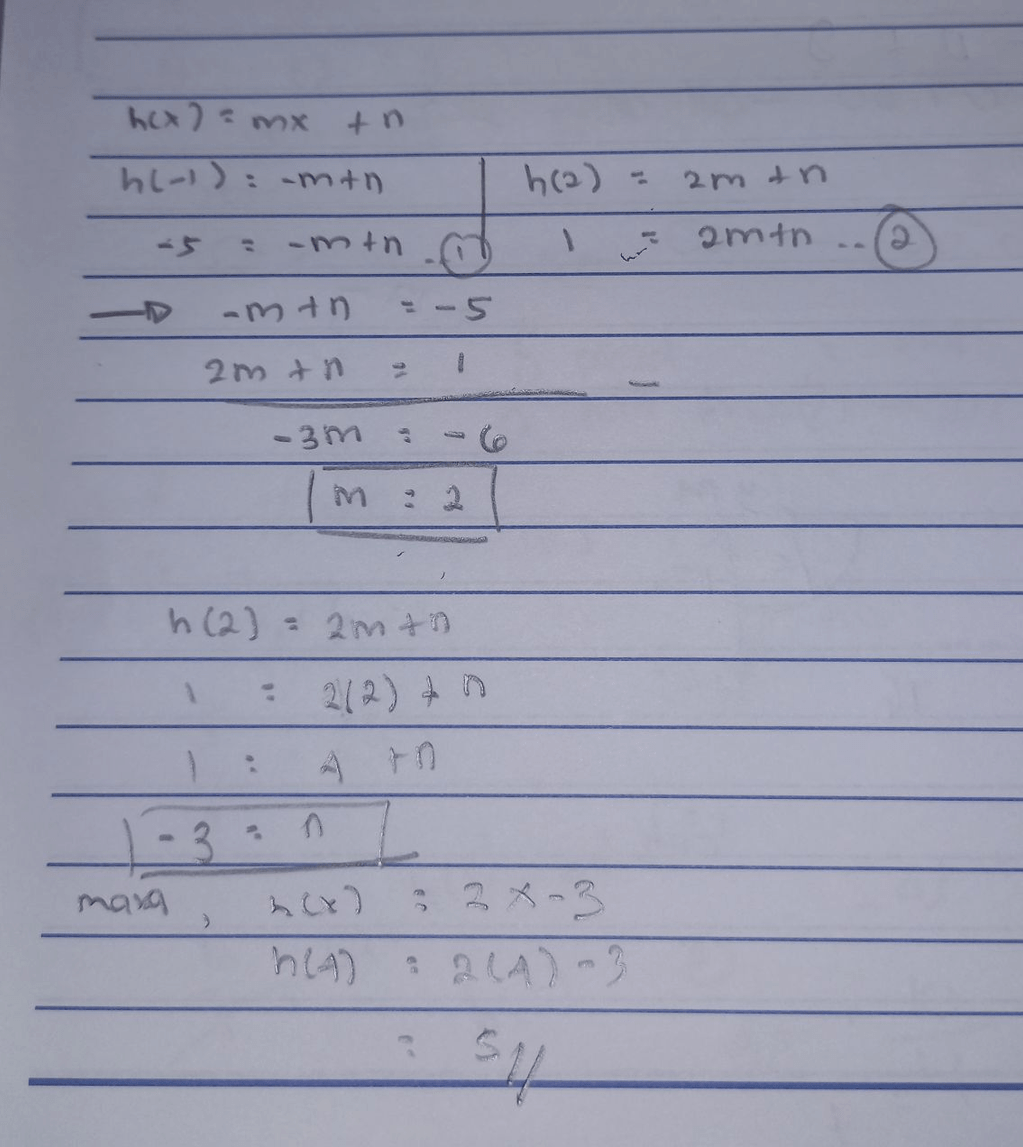 h(x) = mx + n
h(-1) = -m+n | h(2) = 2m + n
-5 = -m+n .. ① 1 = 2m+n .. ②
→ -m+n = -5
2m + n = 1 -
-3m = -6
m = 2
h(2) = 2m + n
1 = 2(2) + n
1 = 4 + n
-3 = n
maka, h(x) = 2x-3
h(4) = 2(4) - 3
= 5//